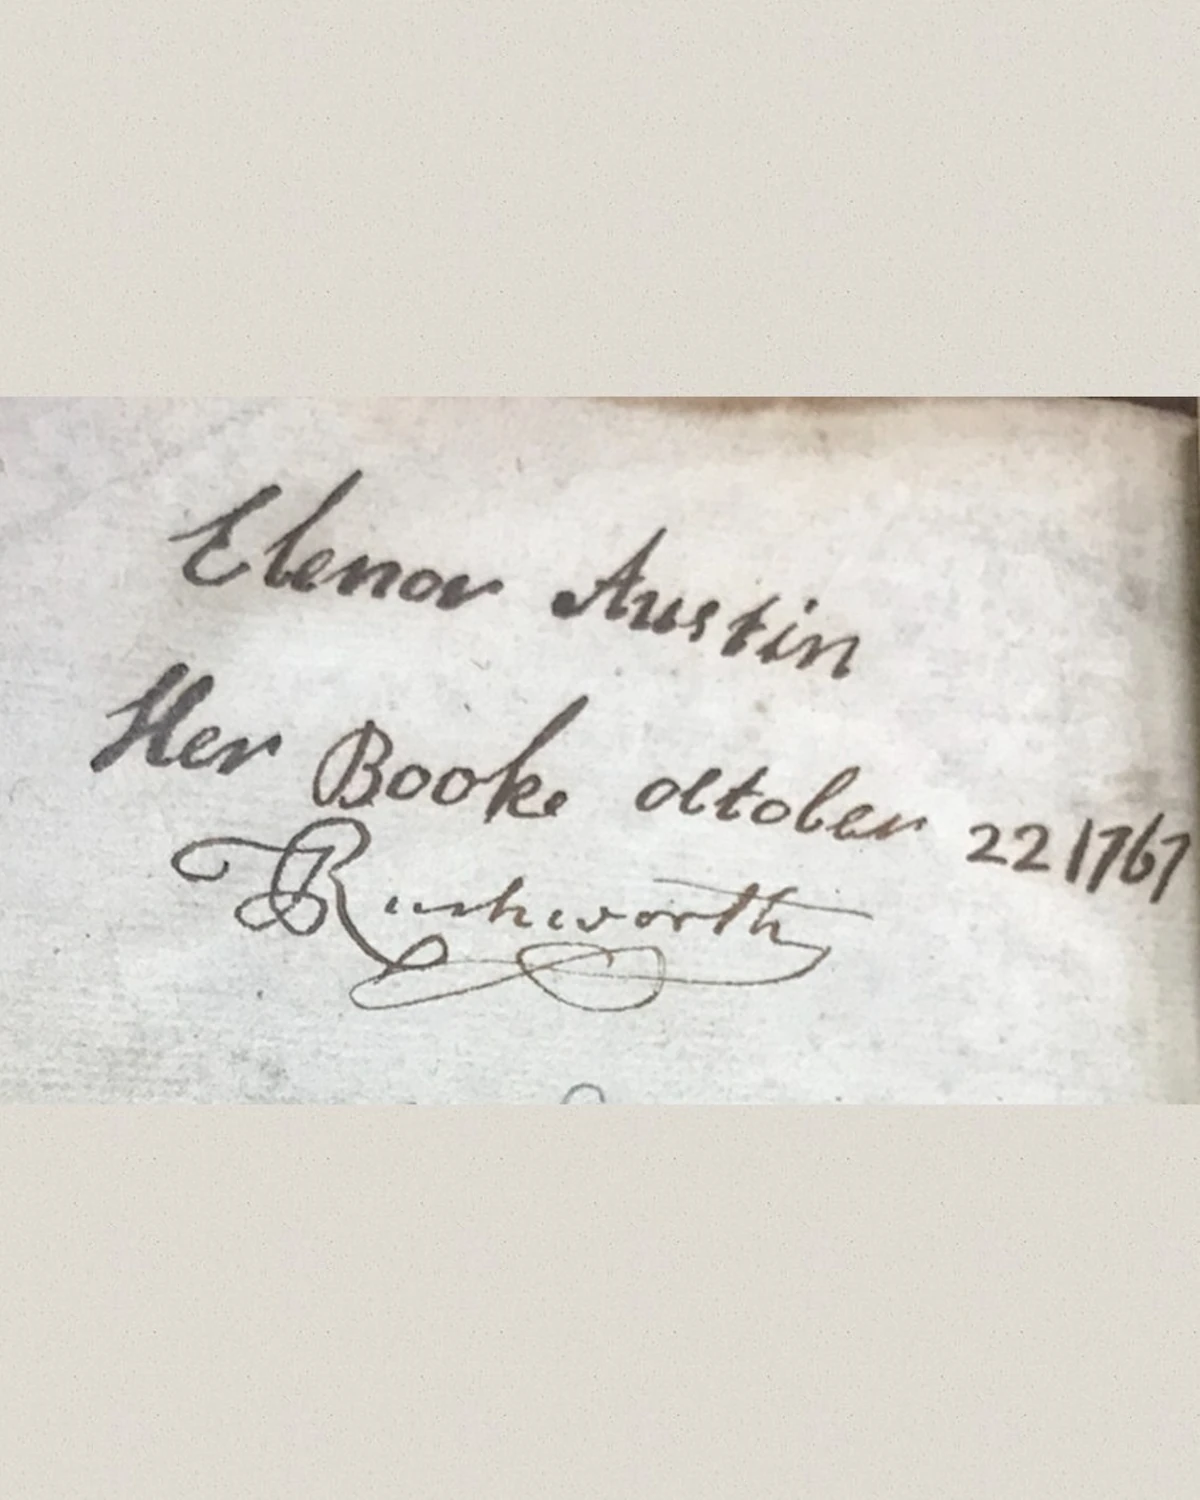 Elenor Austin
Her Booke october 22 1767
Rushworth